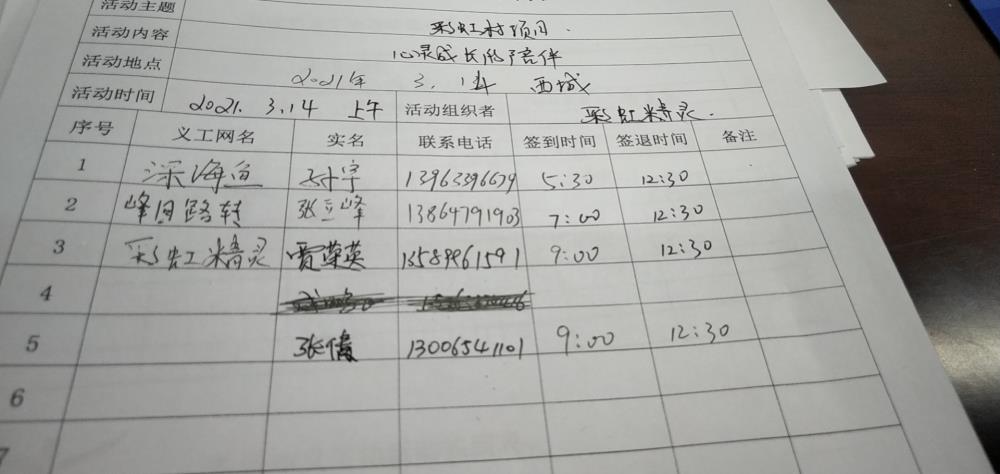 活动主题
活动内容 彩虹村项目.
活动地点 心灵成长的陪伴
2021年 3.14 西城
活动时间 2021. 3.14 上午 活动组织者 彩虹精灵.
序号 义工网名 实名 联系电话 签到时间 签退时间 备注
1 深海鱼 13963396679 5:30 12:30
2 峰回路转 张立峰 13864791903 7:00 12:30
3 彩虹精灵 贾荣英 13589961591 9:00 12:30
4
5 张倩 13006541101 9:00 12:30
6